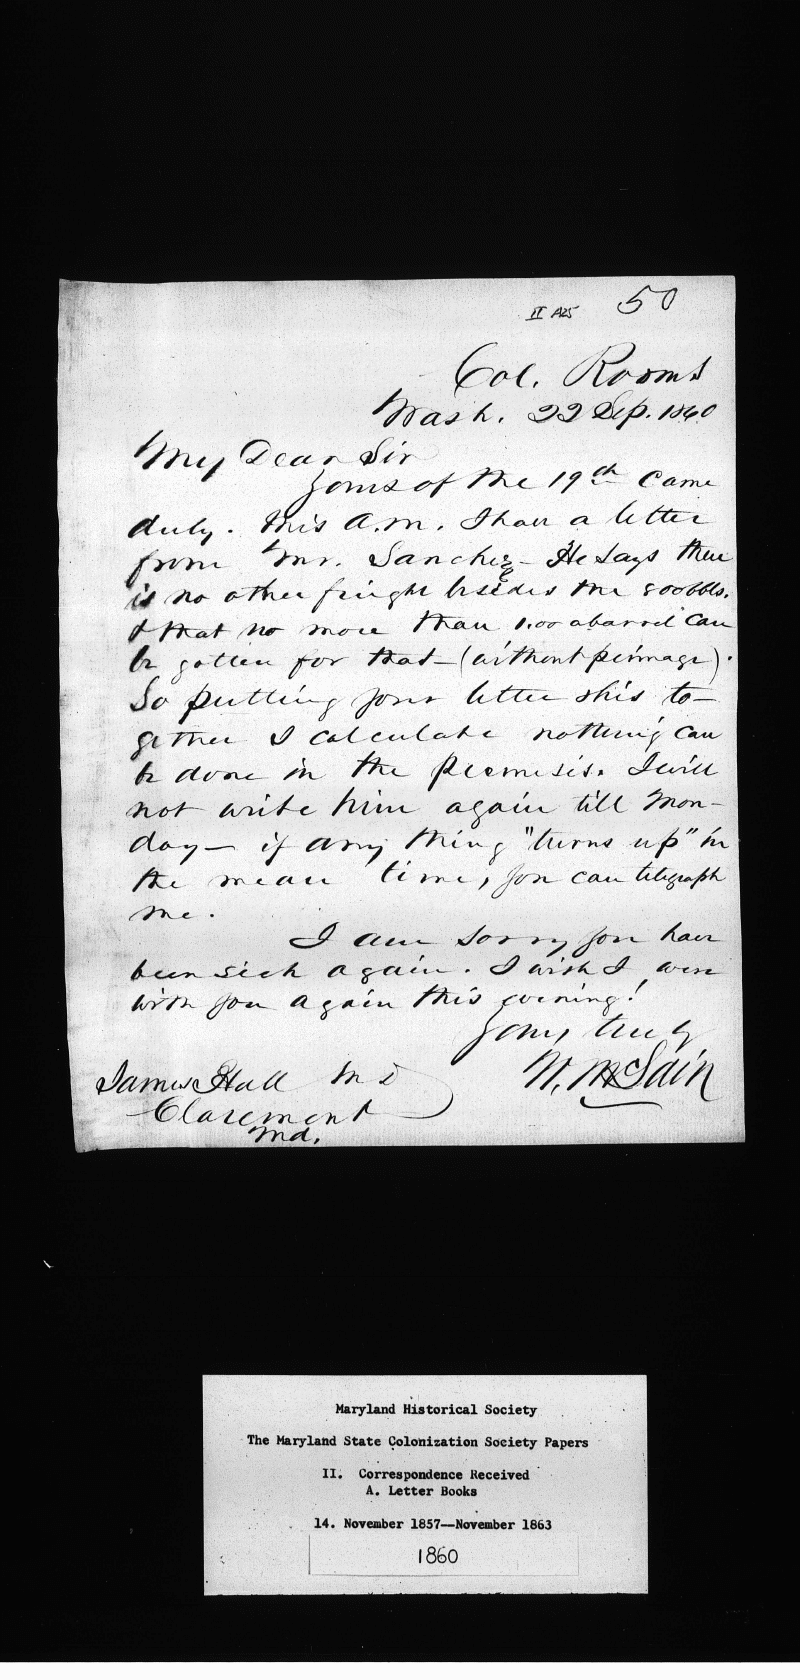 II A25 50
Col. Rooms
Wash. 22 Sep. 1860
My Dear Sir
Yours of the 19th came
duly. This A.M. I have a letter
from Mr. Sanchez - He says there
is no other freight besides the 800 bbls.
& that no more than 1.00 a barrel can
be gotten for that - (without primage).
So putting your letter & his to-
gether I calculate nothing can
be done in the premises. I will
not write him again till Mon-
day - if any thing "turns up" in
the mean time, you can telegraph
me.
I am sorry you have
been sick again. I wish I were
with you again this evening!
Yours truly
W. McLain
James Hall M D
Claremont
Md.
Maryland Historical Society
The Maryland State Colonization Society Papers
II. Correspondence Received
A. Letter Books
14. November 1857--November 1863
1860